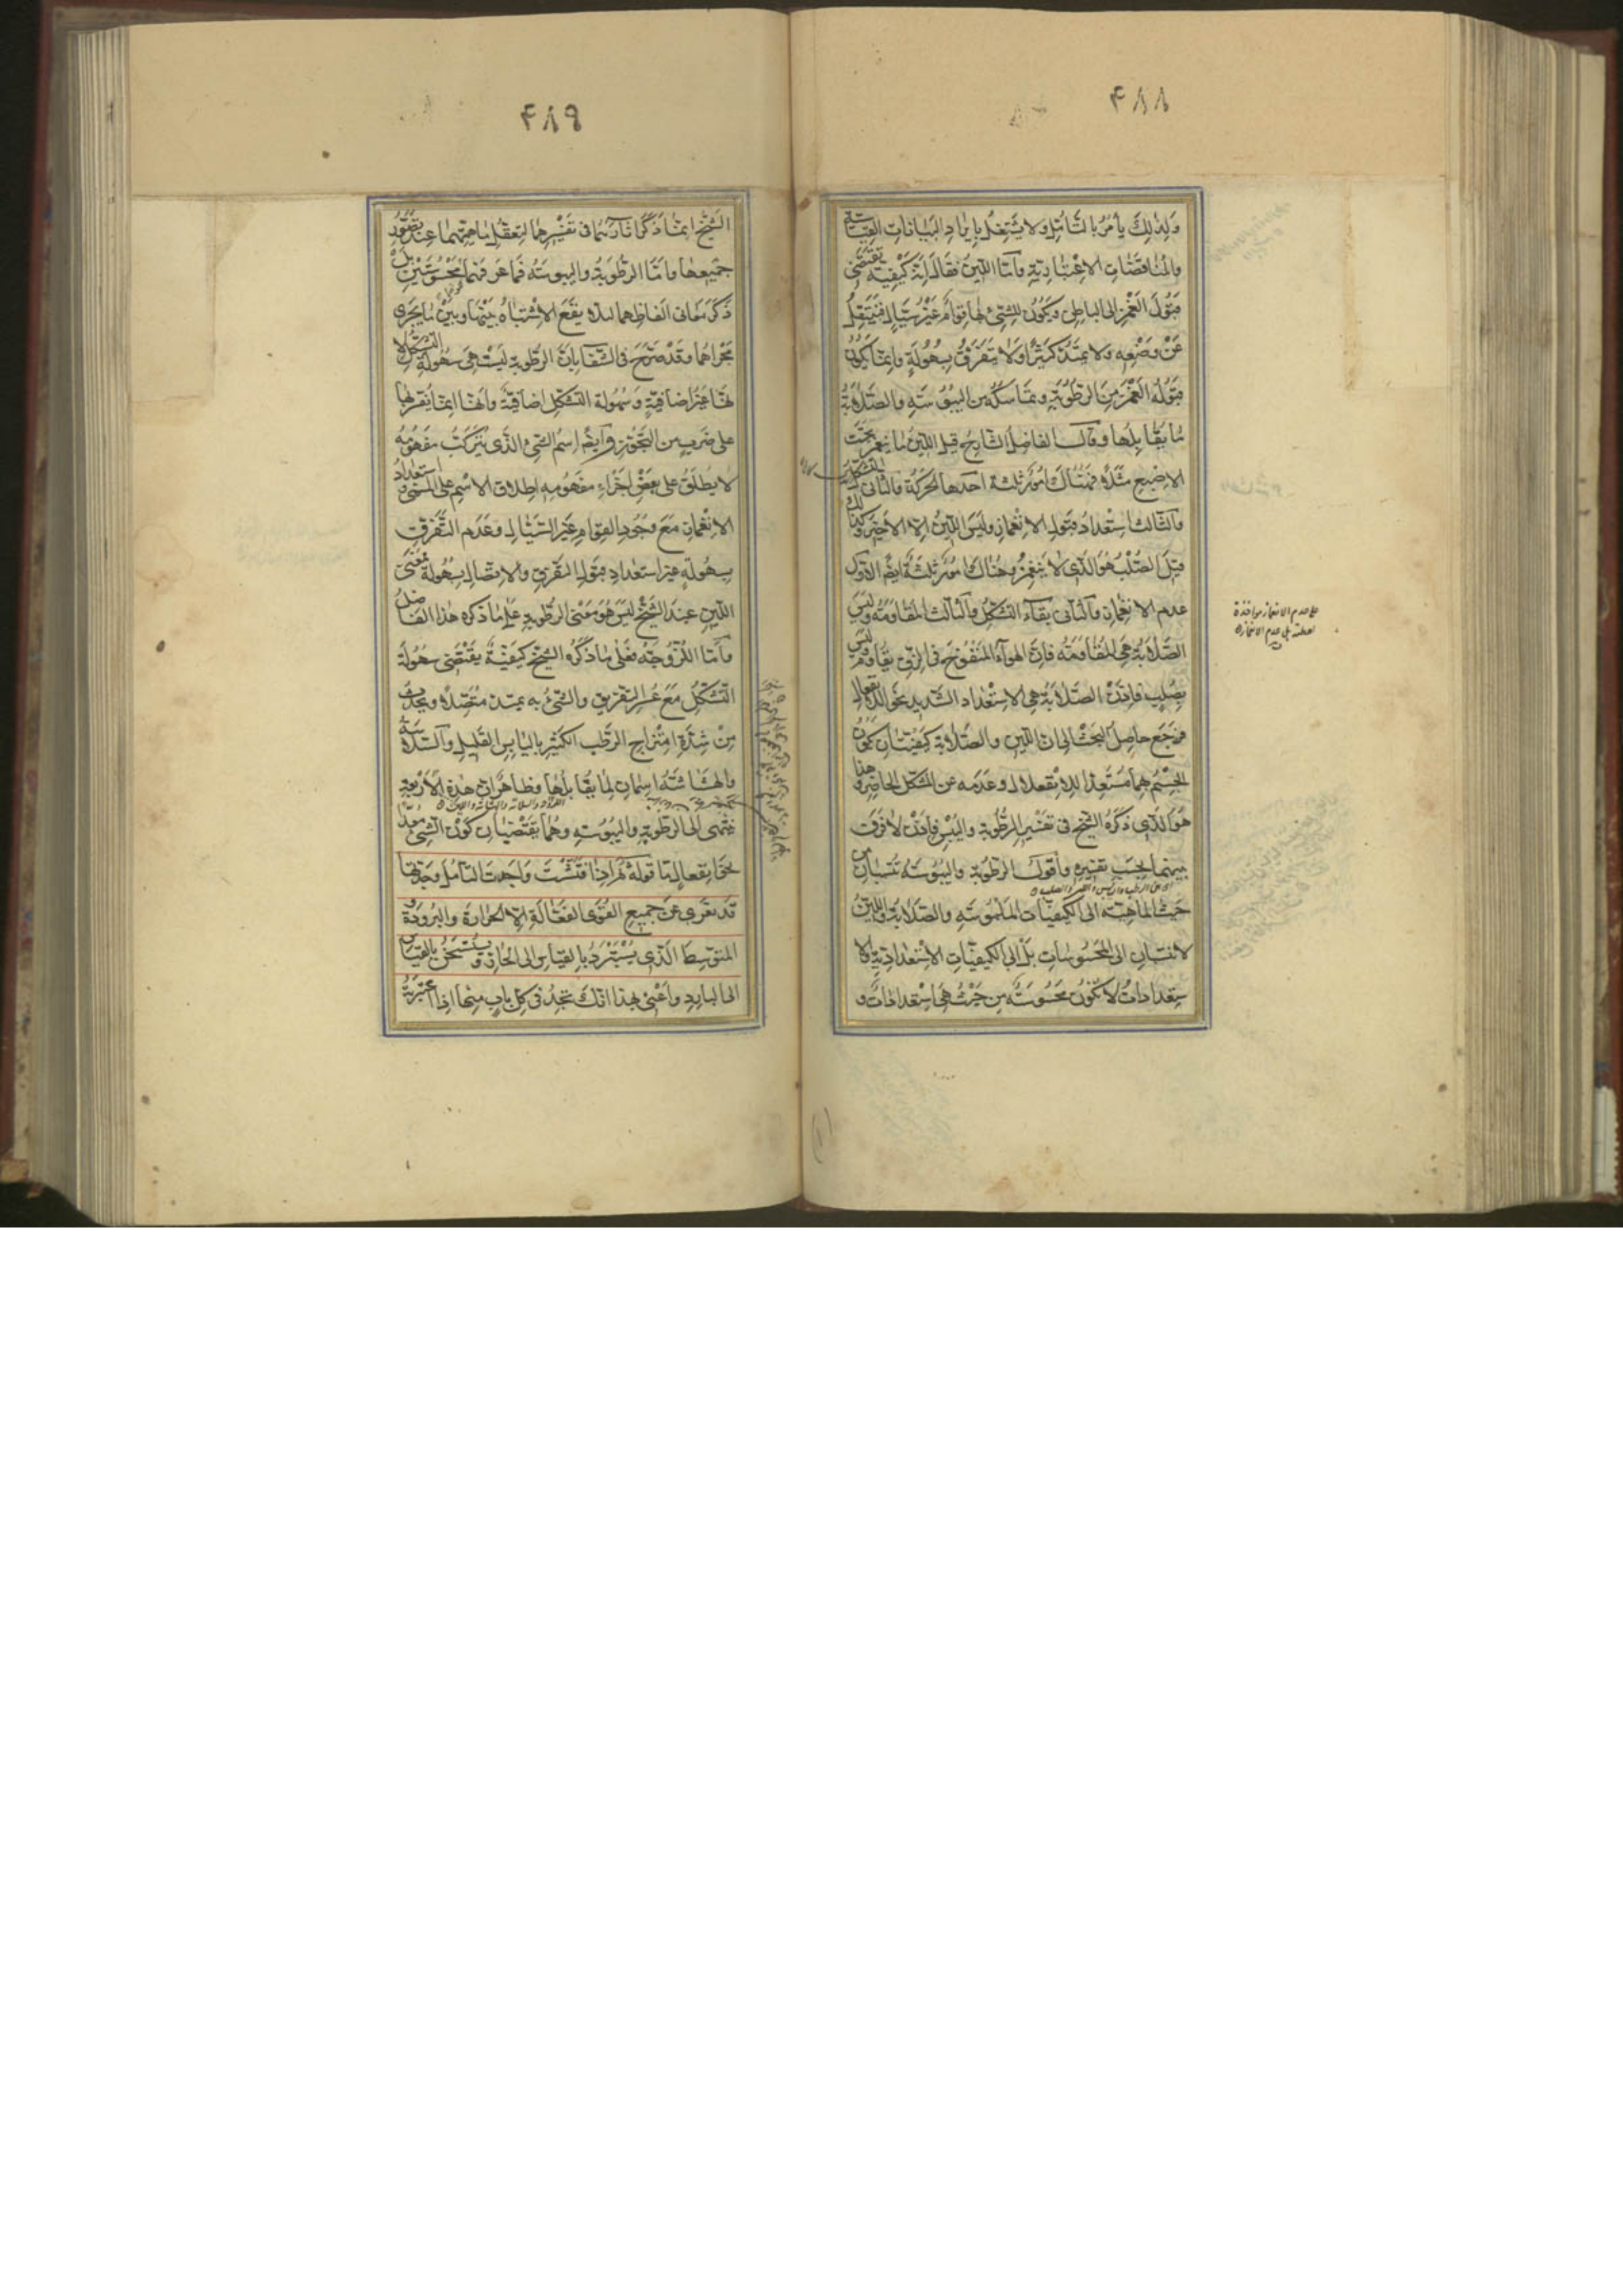 ۴۸۸
وَلِذلِكَ يأمرُ بالتَّأمّلِ ولا يشتغلُ بإيرادِ البيانات القياسيّة
والمناقضات الاعتباديّة وأمّا اللّين فقال إنّه كيفيّة يقتضى
قبولَ الغمز الى الباطن ويكون للشئ بها قوام غير سيّال فينتقل
عن وضعه ولا يمتدّ كثيرًا ولا يتفرّق بسهولة وانّما يكون
قبوله الغمز من الرّطوبة وتماسكه من اليبوسة والصّلابة
ما يقابلها وقال الفاضل الشارح قيل اللّين ما ينغمز تحت
الاصبع مثلا فهناك امور ثلثة احدها الحركة والثانى التشكّل
والثالث استعداد قبول الانغماز وليس اللّين الا الاخير وكذلك
قيل الصّلب هو الّذى لا ينغمز وهناك امور ثلثة ايضًا الاوّل
عدم الانغماز والثانى بقاء التشكّل والثالث المقاومة وليس
الصّلابة هى المقاومة فانّ الهواء المنفوخ فى الزق يقاوم وليس
بصلب فاذن الصّلابة هى الاستعداد الشّديد نحو اللّاانفعال
فرجع حاصل البحث الى ان اللّين والصّلابة كيفيّتان يكون
الجسم بهما مستعدّا للانفعال وعدمه عن المشكل الحاضر وهذا
هو الّذى ذكره الشيخ فى تفسير الرّطوبة واليبس فاذن لا فرق
بينهما بحسب تفسيره وأقول الرّطوبة واليبوسة تنسبان من
حيث الماهيّة الى الكيفيّات الملموسة والصّلابة واللّين
لا تنسبان الى المحسوسات بل الى الكيفيّات الاستعداديّة والا
ستعدادات لا تكون محسوسة من حيث هى استعدادات و
على عدم الانغماز
عدم الانغماز
۴۸۹
الشيخ انّما ذكر آثارهما فى تفسيرهما لتعقل ماهيّتهما عند تصوّر
جميعها وأمّا الرّطوبة واليبوسة فما عرفهما محسوسين بل
ذكر معانى الفاظهما لئلا يقع الاشتباه بينهما وبين ما يجرى
مجراهما وقد صرّح فى الشّفا بانّ الرّطوبة ليست هى سهولة التشكّل لا
نّها غير اضافيّة وسهولة التشكّل اضافيّة وانّها انّما يفسّر بها
على ضرب من التجوّز وايضًا اسم الشئ الّذى يتركّب مفهومه
لا يطلق على بعض اجزاء مفهومه اطلاق الاسم على المسمّى واستعداد
الانغماز مع وجود القوام غير السّيّال وعدم التّفرّق
بسهولة غير استعداد قبول التفرّق والاتّصال بسهولة فمعنى
اللّين عند الشيخ ليس هو معنى الرّطوبة على ما ذكره هذا الفاضل
وأمّا اللّزوجة فعلى ما ذكره الشيخ كيفيّة يقتضى سهولة
التّشكّل مع عسر التفريق والشئ به يمتدّ متّصلا ويحدث
من شدّة امتزاج الرّطب الكثير باليابس القليل والسّلاسة
والهشاشة اسمان لما يقابلها فظاهر انّ هذه الاربعة
تنتمى الى الرّطوبة واليبوسة وهما يقتضيان كون الشئ معدّا
نحو انفعال ما قوله ثم اذا فتّشت واجدت التأمّل وجدتها
قد تعرى عن جميع القوى الفعّالة الّا الحرارة والبرودة و
المتوسط الّذى يستبرد بالقياس الى الحارّ ويستسخن بالقياس
الى البارد وأعنى بهذا انّك تجد فى كلّ باب منها اذا اعتبرته